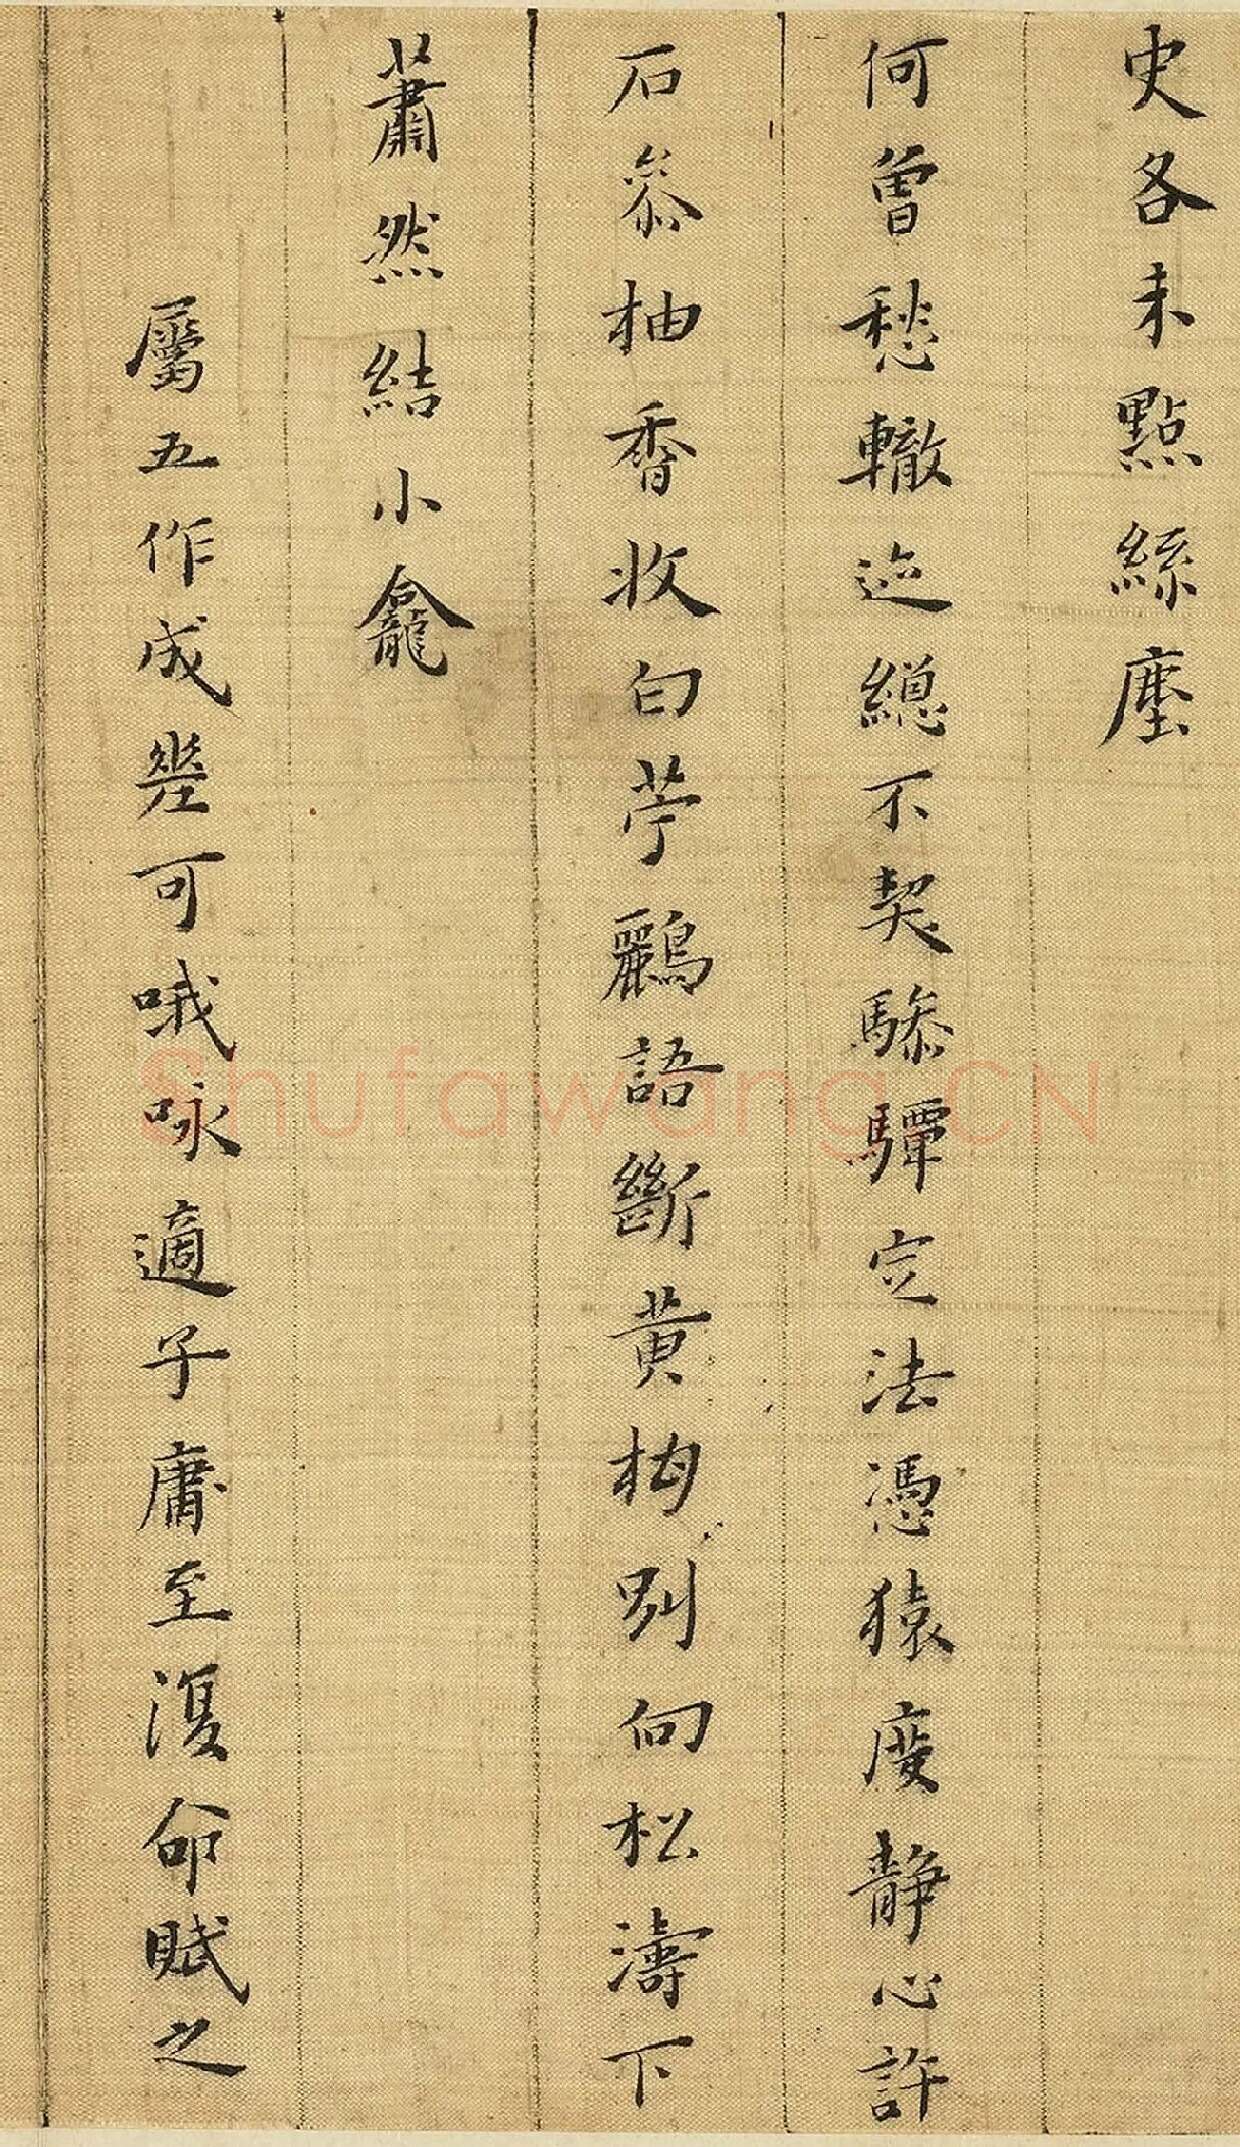 史各未點絲塵
何曾愁轍迹總不契驂驔定法憑猿度靜心許
石參柚香收白苧鸝語斷黃柑別向松濤下
蕭然結小龕
屬五作成幾可哦咏適子庸至復命賦之
Shufawang.CN